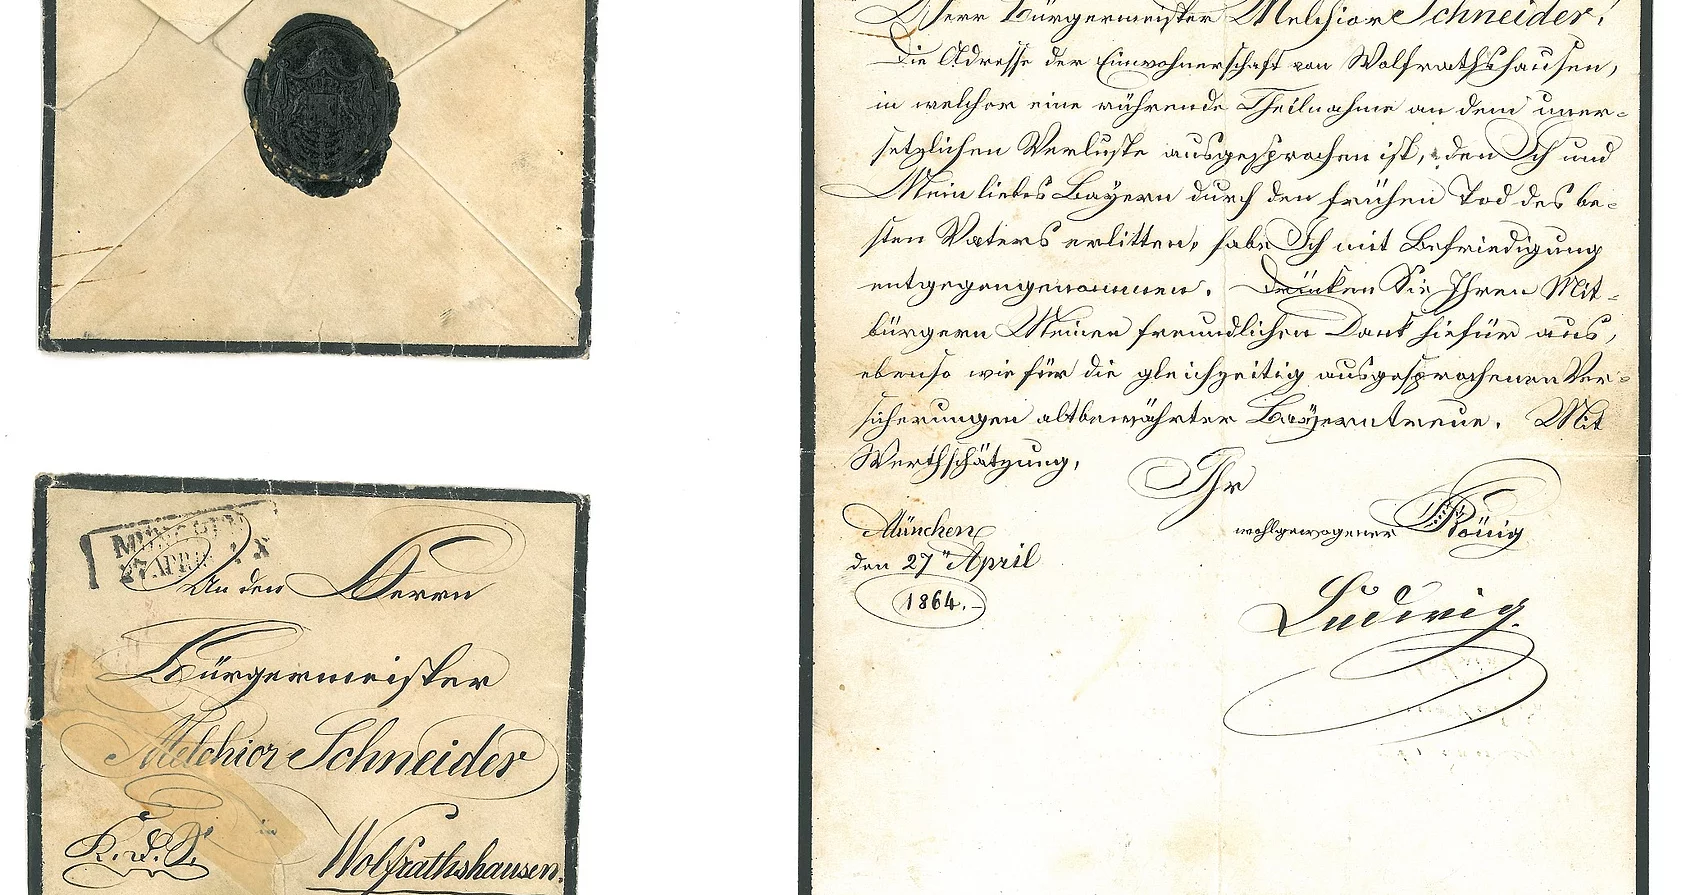 MÜNCHEN
27 APR
An den Herrn
Bürgermeister
Melchior Schneider
K. d. I. in
Wolfrathshausen.
Herr Bürgermeister Melchior Schneider!
Die Adresse der Einwohnerschaft von Wolfrathshausen,
in welcher eine rührende Theilnahme an dem uner-
setzlichen Verluste ausgesprochen ist, den Ich und
Mein liebes Bayern durch den frühen Tod des be-
sten Vaters erlitten, habe Ich mit Befriedigung
entgegengenommen. Drücken Sie Ihren Mit-
bürgern Meinen freundlichen Dank hiefür aus,
ebenso wie für die gleichzeitig ausgesprochenen Ver-
sicherungen altbewährter Bayerntreue. Mit
Werthschätzung,
Ihr
wohlgewogener König
München
den 27" April
1864.-
Ludwig.